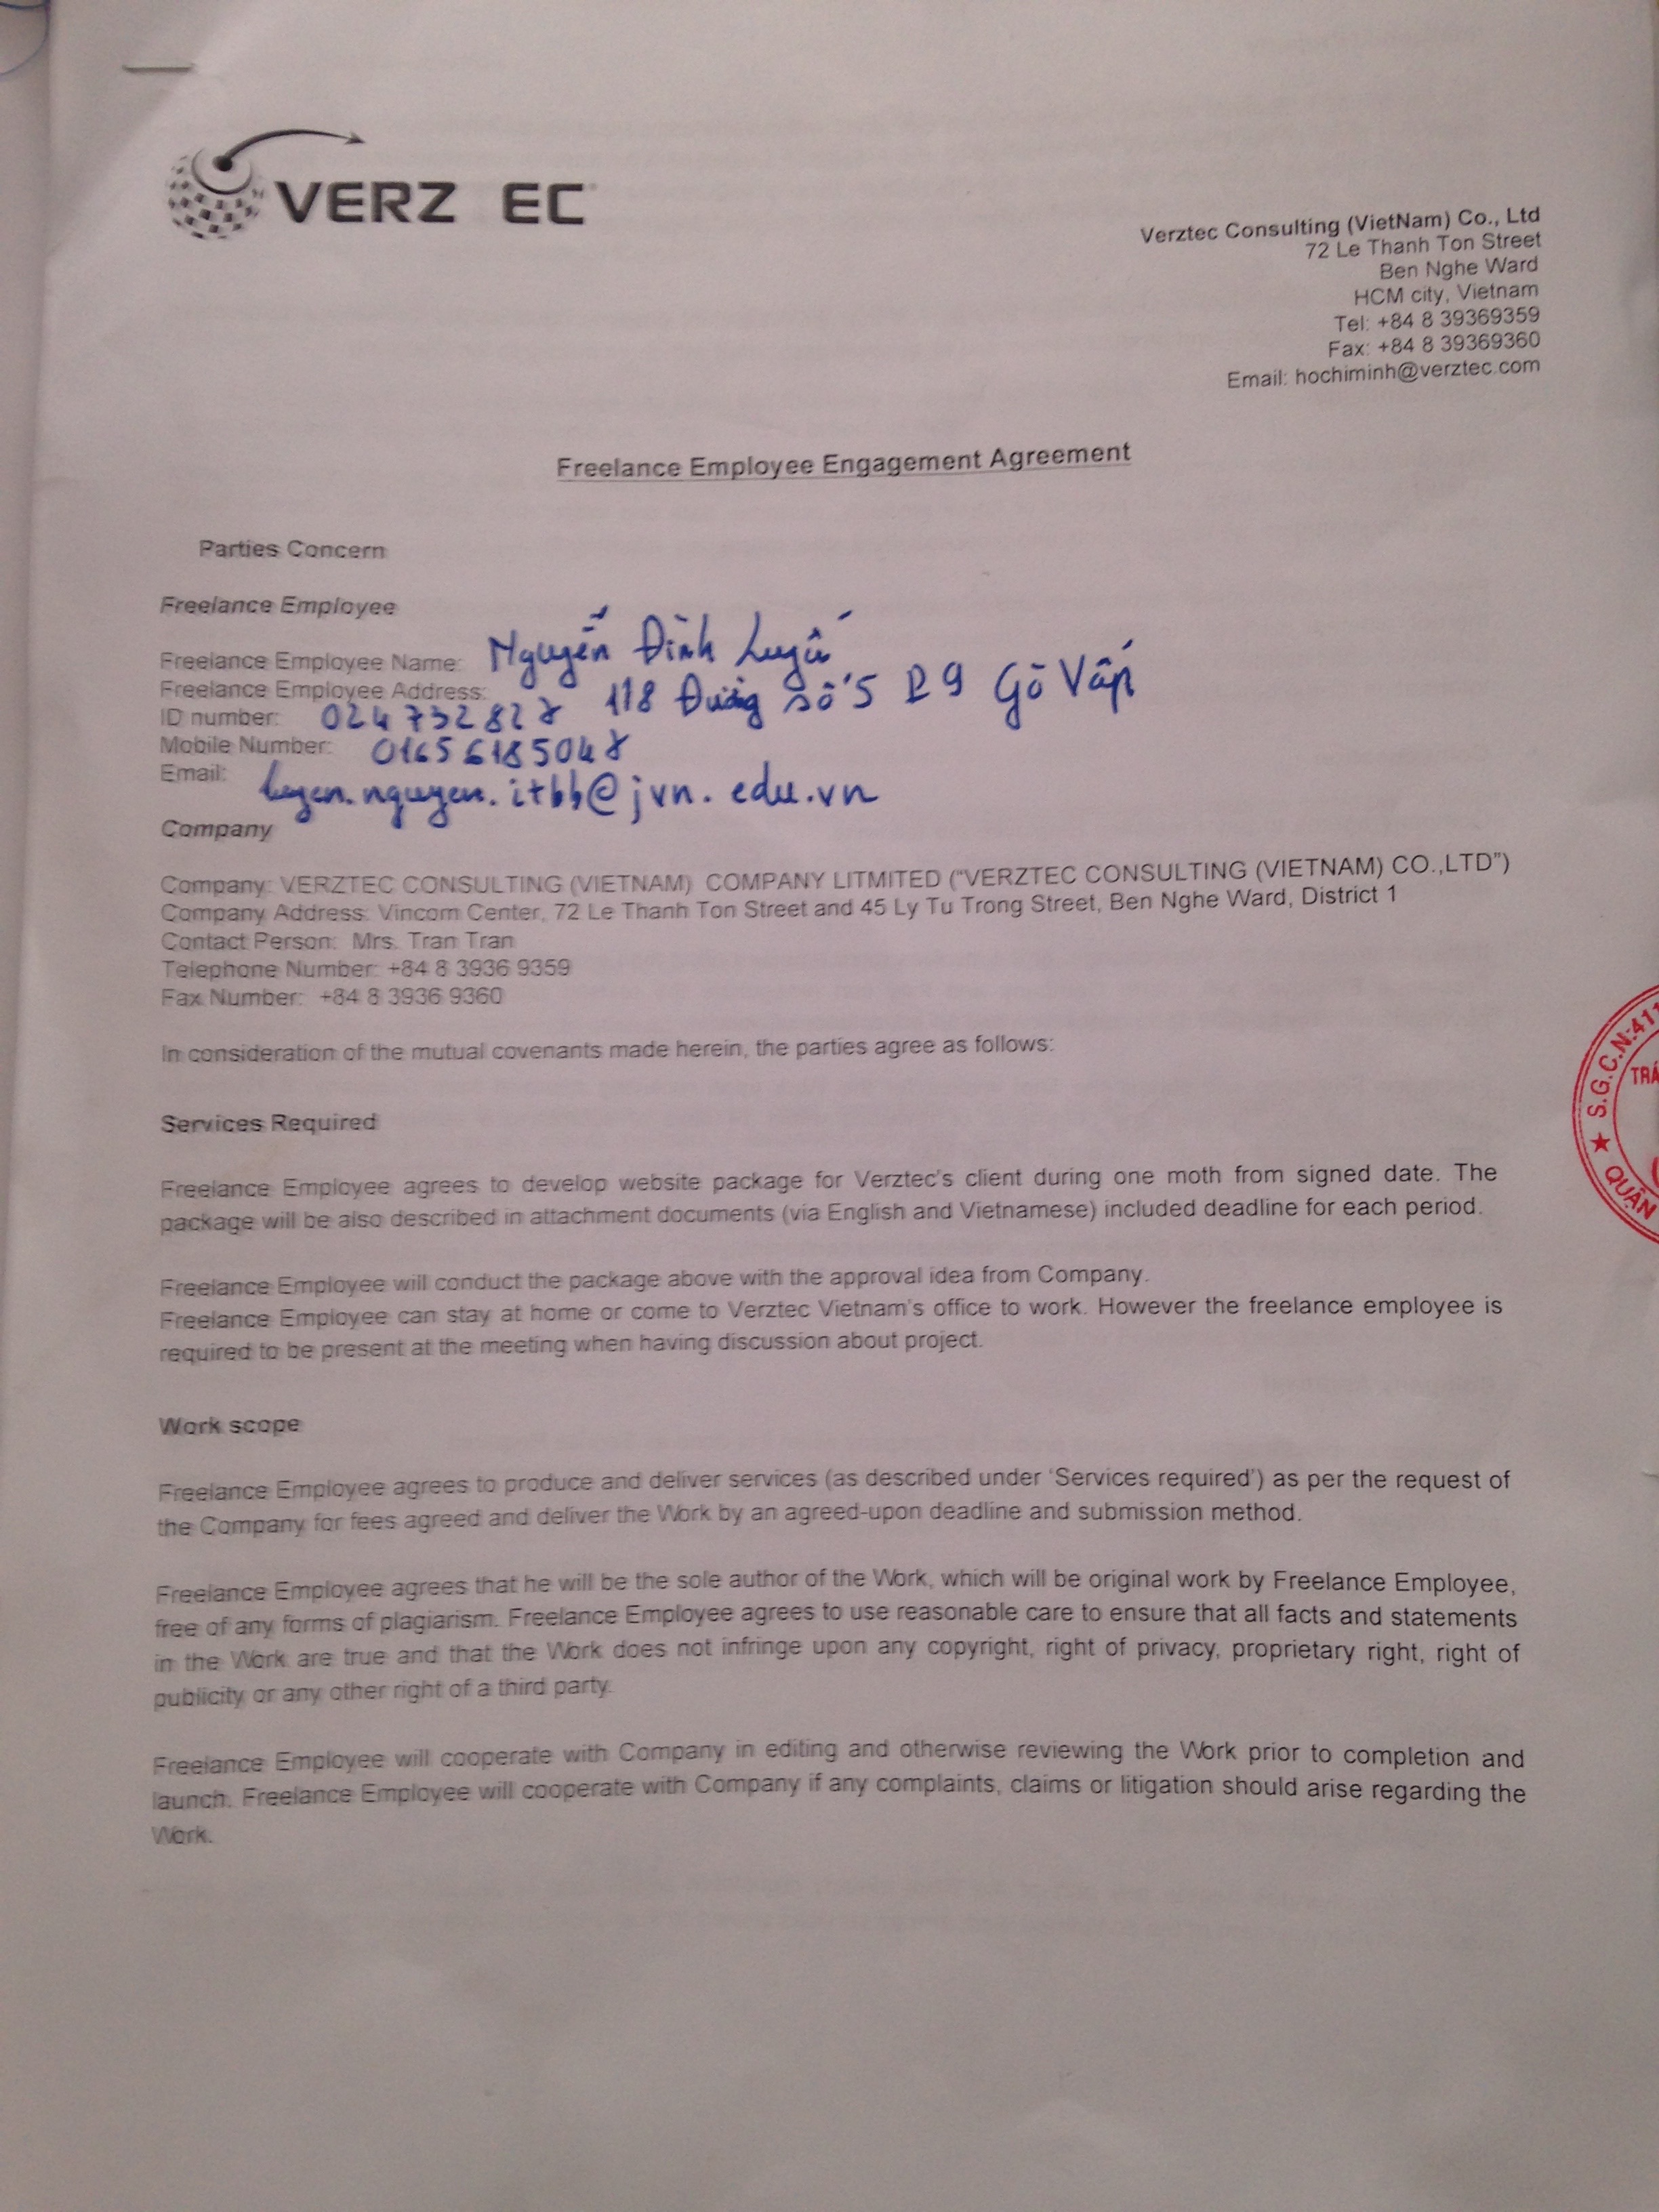 VERZ EC
Verztec Consulting (VietNam) Co., Ltd
72 Le Thanh Ton Street
Ben Nghe Ward
HCM city, Vietnam
Tel: +84 8 39369359
Fax: +84 8 39369360
Email: hochiminh@verztec.com
Freelance Employee Engagement Agreement
Parties Concern
Freelance Employee
Freelance Employee Name: Nguyễn Đình
Freelance Employee Address: 118 Đường số 5 P9 Gò Vấp
ID number:
Mobile Number:
Email:
Company
Company: VERZTEC CONSULTING (VIETNAM) COMPANY LITMITED ("VERZTEC CONSULTING (VIETNAM) CO.,LTD")
Company Address: Vincom Center, 72 Le Thanh Ton Street and 45 Ly Tu Trong Street, Ben Nghe Ward, District 1
Contact Person: Mrs. Tran Tran
Telephone Number: +84 8 3936 9359
Fax Number: +84 8 3936 9360
In consideration of the mutual covenants made herein, the parties agree as follows:
S.G.C.N:411
QUẬN
Services Required
Freelance Employee agrees to develop website package for Verztec's client during one moth from signed date. The
package will be also described in attachment documents (via English and Vietnamese) included deadline for each period.
Freelance Employee will conduct the package above with the approval idea from Company.
Freelance Employee can stay at home or come to Verztec Vietnam's office to work. However the freelance employee is
required to be present at the meeting when having discussion about project.
Work scope
Freelance Employee agrees to produce and deliver services (as described under 'Services required') as per the request of
the Company for fees agreed and deliver the Work by an agreed-upon deadline and submission method.
Freelance Employee agrees that he will be the sole author of the Work, which will be original work by Freelance Employee,
free of any forms of plagiarism. Freelance Employee agrees to use reasonable care to ensure that all facts and statements
in the Work are true and that the Work does not infringe upon any copyright, right of privacy, proprietary right, right of
publicity or any other right of a third party.
Freelance Employee will cooperate with Company in editing and otherwise reviewing the Work prior to completion and
launch. Freelance Employee will cooperate with Company if any complaints, claims or litigation should arise regarding the
Work.